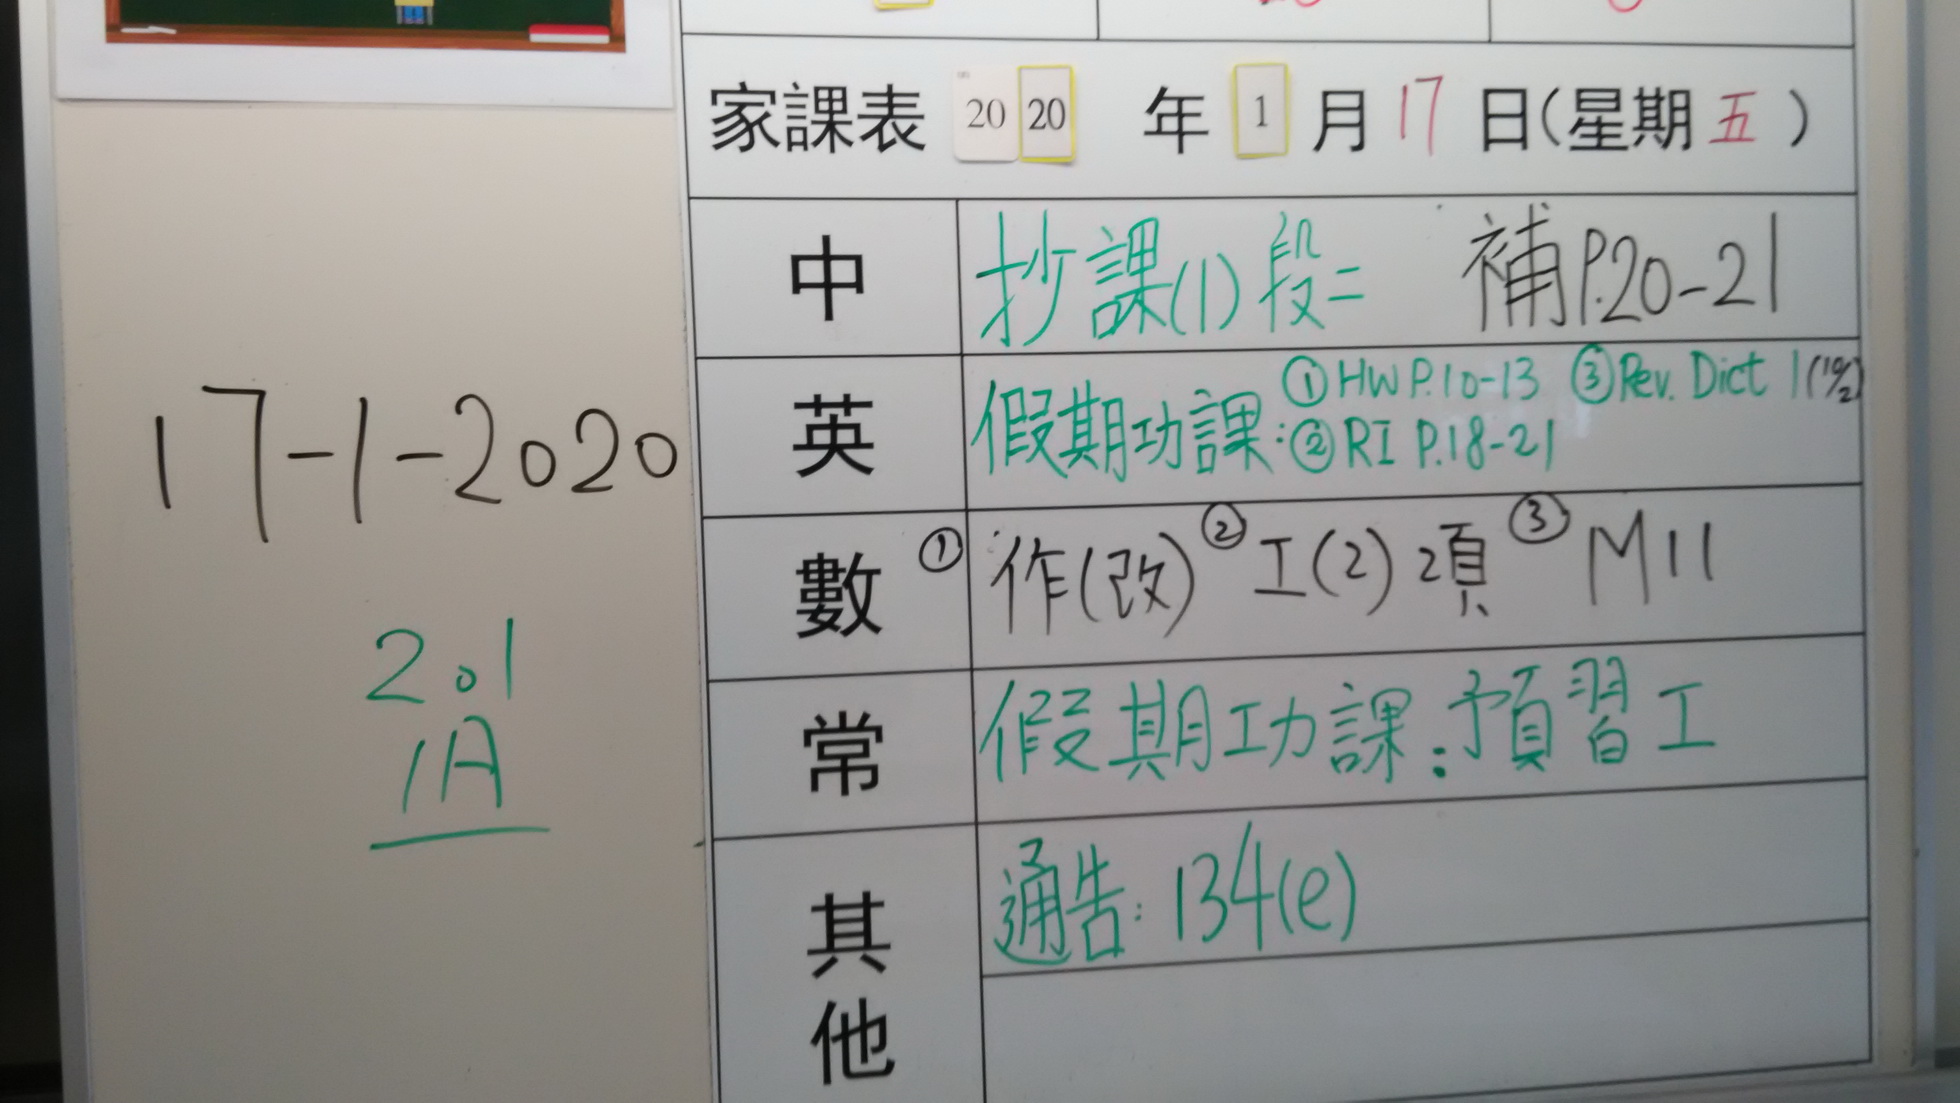 家課表 20 20 年 1 月 17 日(星期五)
中 抄課(1)段二 補P.20-21
英 假期功課: ①HW P.10-13 ③Rev. Dict 1 (10/2)
②RI P.18-21
數 ①作(改) ②工(2)2項 ③M11
常 假期功課:預習工
其他 通告: 134(e)
17-1-2020
201
1A